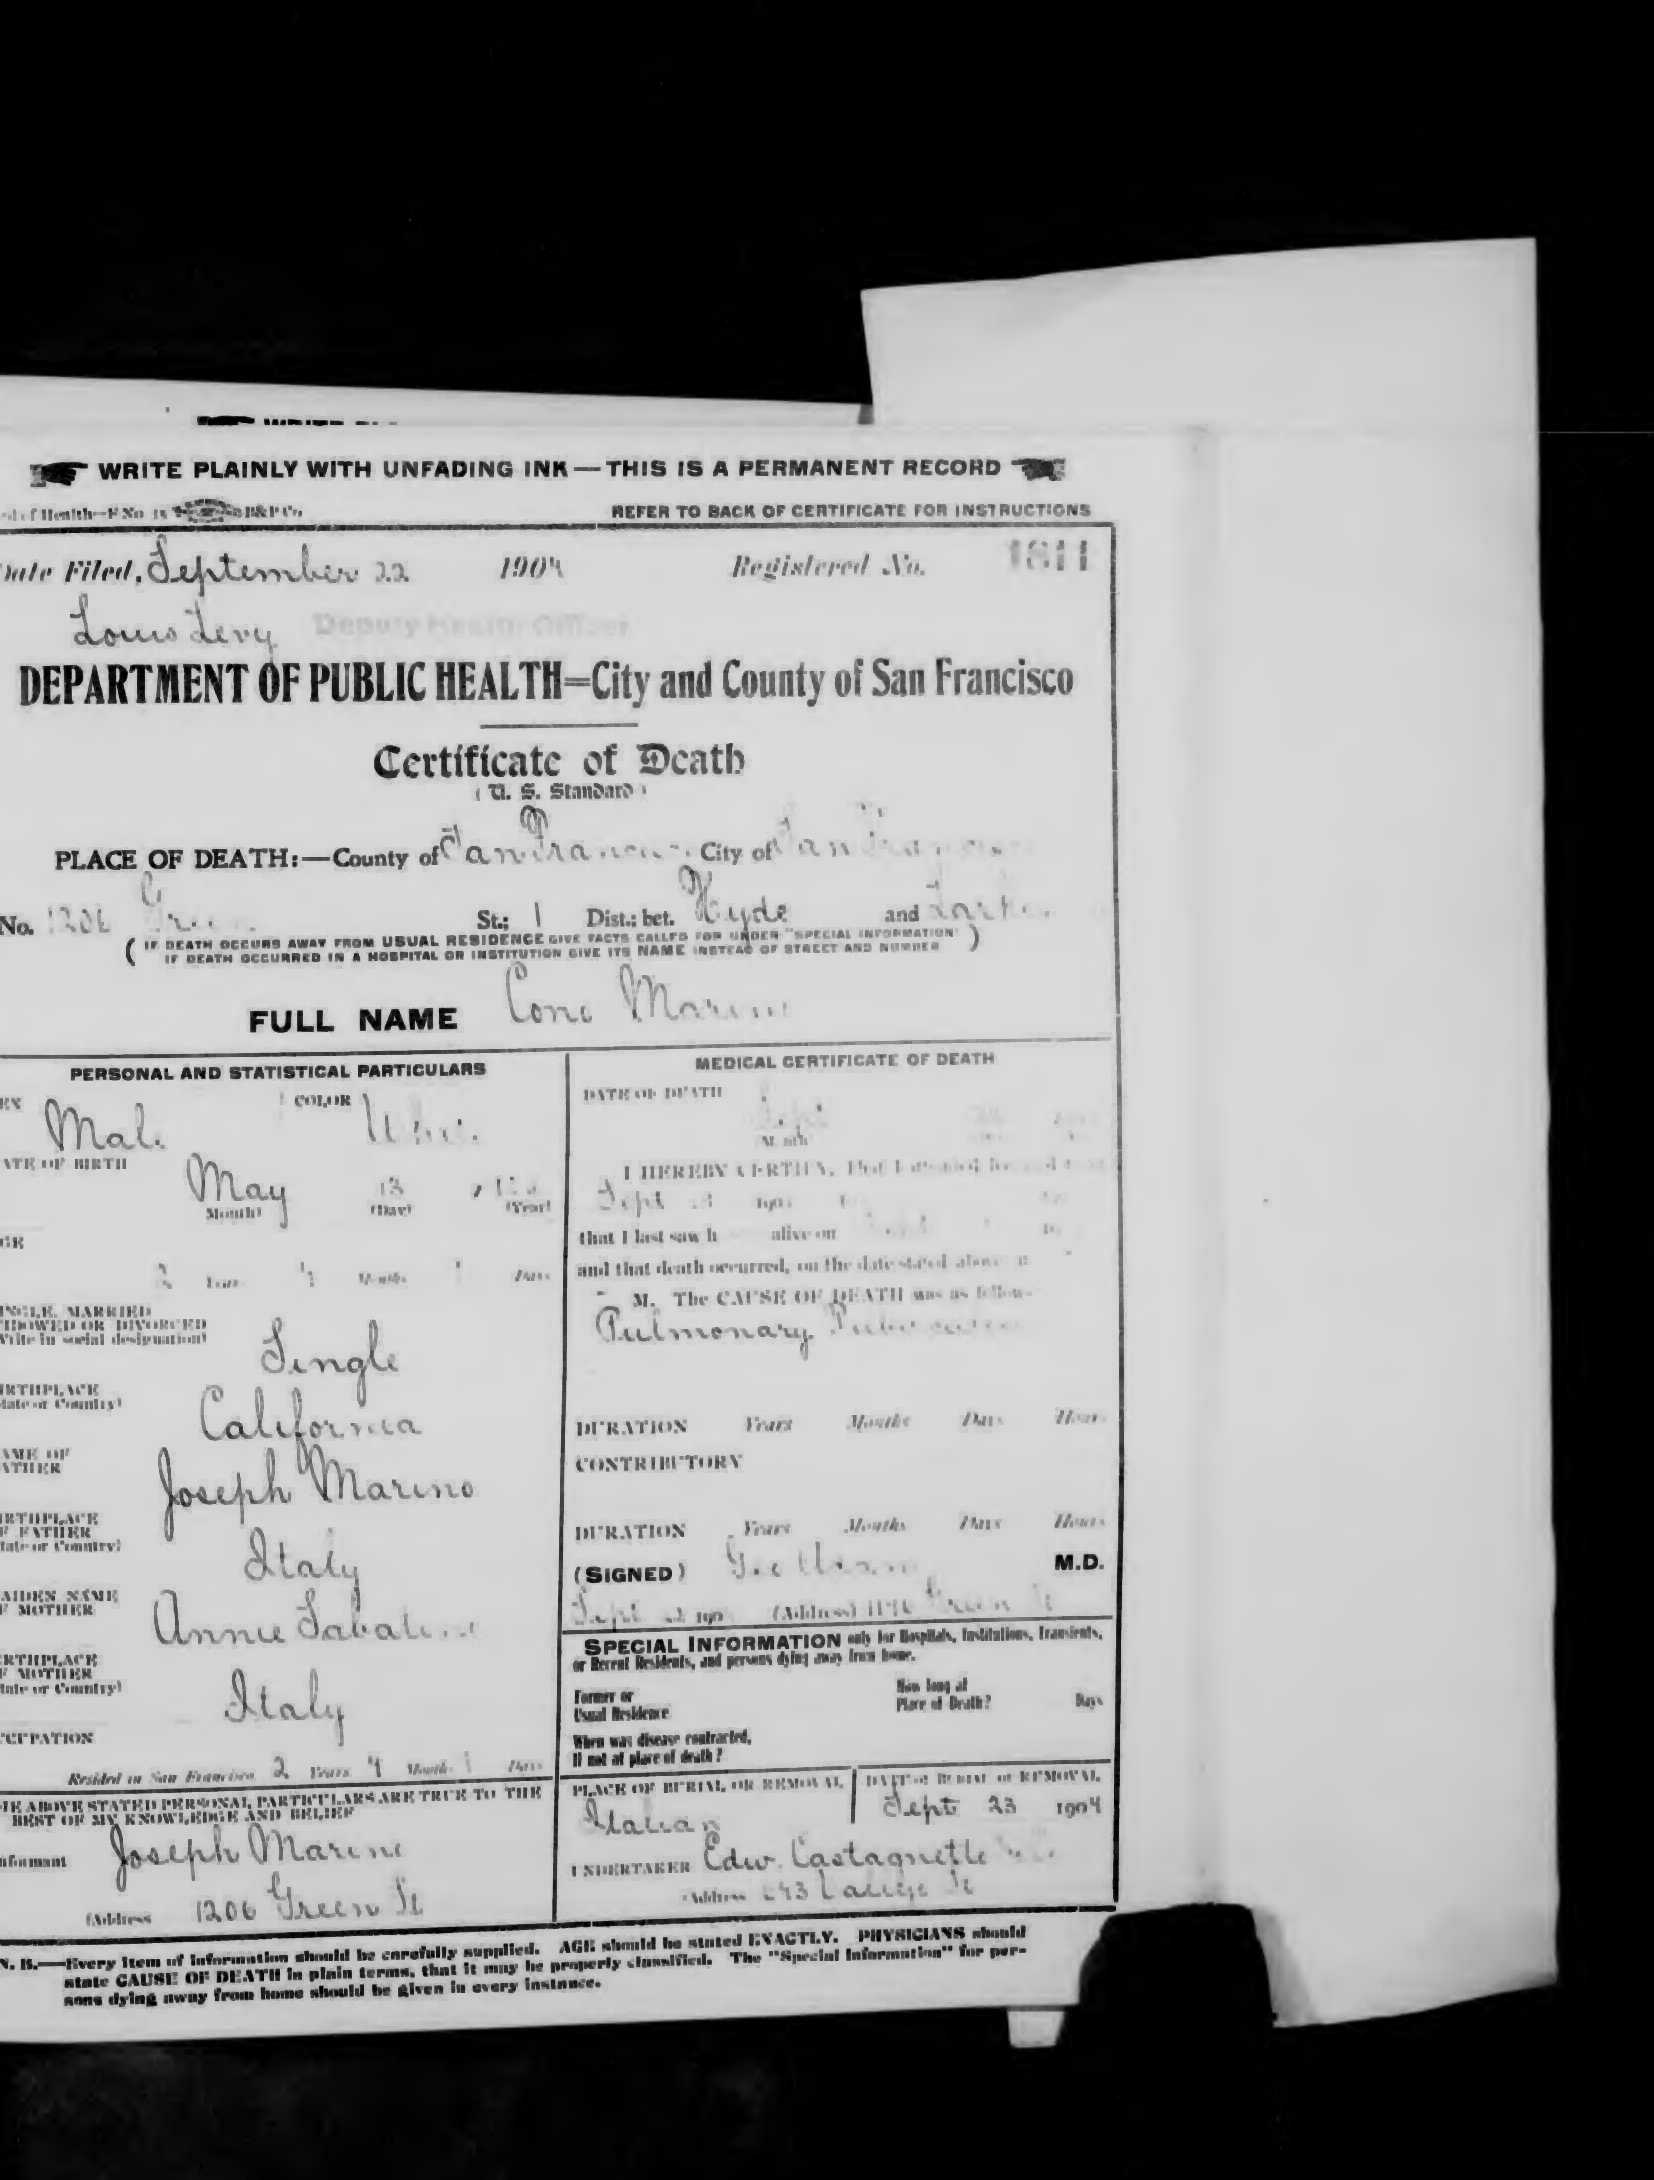 WRITE PLAINLY WITH UNFADING INK—THIS IS A PERMANENT RECORD
of Health—F No. 15 B&P Co.
REFER TO BACK OF CERTIFICATE FOR INSTRUCTIONS
Date Filed, September 22 1904 Registered No. 1811
Louis Levy Deputy Health Officer
DEPARTMENT OF PUBLIC HEALTH=City and County of San Francisco
Certificate of Death
(U. S. Standard)
PLACE OF DEATH:—County of San Francisco City of San Francisco
No. 1206 Green St.; 1 Dist.; bet. Hyde and Larkin
(IF DEATH OCCURS AWAY FROM USUAL RESIDENCE GIVE FACTS CALLED FOR UNDER "SPECIAL INFORMATION"
IF DEATH OCCURRED IN A HOSPITAL OR INSTITUTION GIVE ITS NAME INSTEAD OF STREET AND NUMBER)
FULL NAME Cono Marino
PERSONAL AND STATISTICAL PARTICULARS
COLOR
Male Whi
DATE OF BIRTH
May 13
(Month) (Day) (Year)
2 Years 4 Months Days
SINGLE, MARRIED
WIDOWED OR DIVORCED
(Write in social designation)
Single
BIRTHPLACE
(State or Country)
California
NAME OF
FATHER
Joseph Marino
BIRTHPLACE
OF FATHER
(State or Country)
Italy
MAIDEN NAME
OF MOTHER
Annie
BIRTHPLACE
OF MOTHER
(State or Country)
Italy
OCCUPATION
Resided in San Francisco 2 Years 4 Months Days
THE ABOVE STATED PERSONAL PARTICULARS ARE TRUE TO THE
BEST OF MY KNOWLEDGE AND BELIEF
Informant Joseph Marino
(Address 1206 Green St
MEDICAL CERTIFICATE OF DEATH
DATE OF DEATH
Sept
Month
I HEREBY CERTIFY, That I attended
Sept 190
that I last saw h alive on
and that death occurred, on the date stated above
M. The CAUSE OF DEATH was as follows
Pulmonary Tuberculosis
DURATION Years Months Days Hours
CONTRIBUTORY
DURATION Years Months Days Hours
(SIGNED) M.D.
Sept 22 190 (Address) Green St
SPECIAL INFORMATION only for Hospitals, Institutions, Transients,
or Recent Residents, and persons dying away from home.
Former or
Usual Residence
How long at
Place of Death? Days
When was disease contracted,
If not at place of death?
PLACE OF BURIAL OR REMOVAL
Italian
DATE of BURIAL or REMOVAL
Sept 23 1904
UNDERTAKER Edw. Castagnetto
(Address
N. B.—Every item of information should be carefully supplied. AGE should be stated EXACTLY. PHYSICIANS should
state CAUSE OF DEATH in plain terms, that it may be properly classified. The "Special Information" for per-
sons dying away from home should be given in every instance.